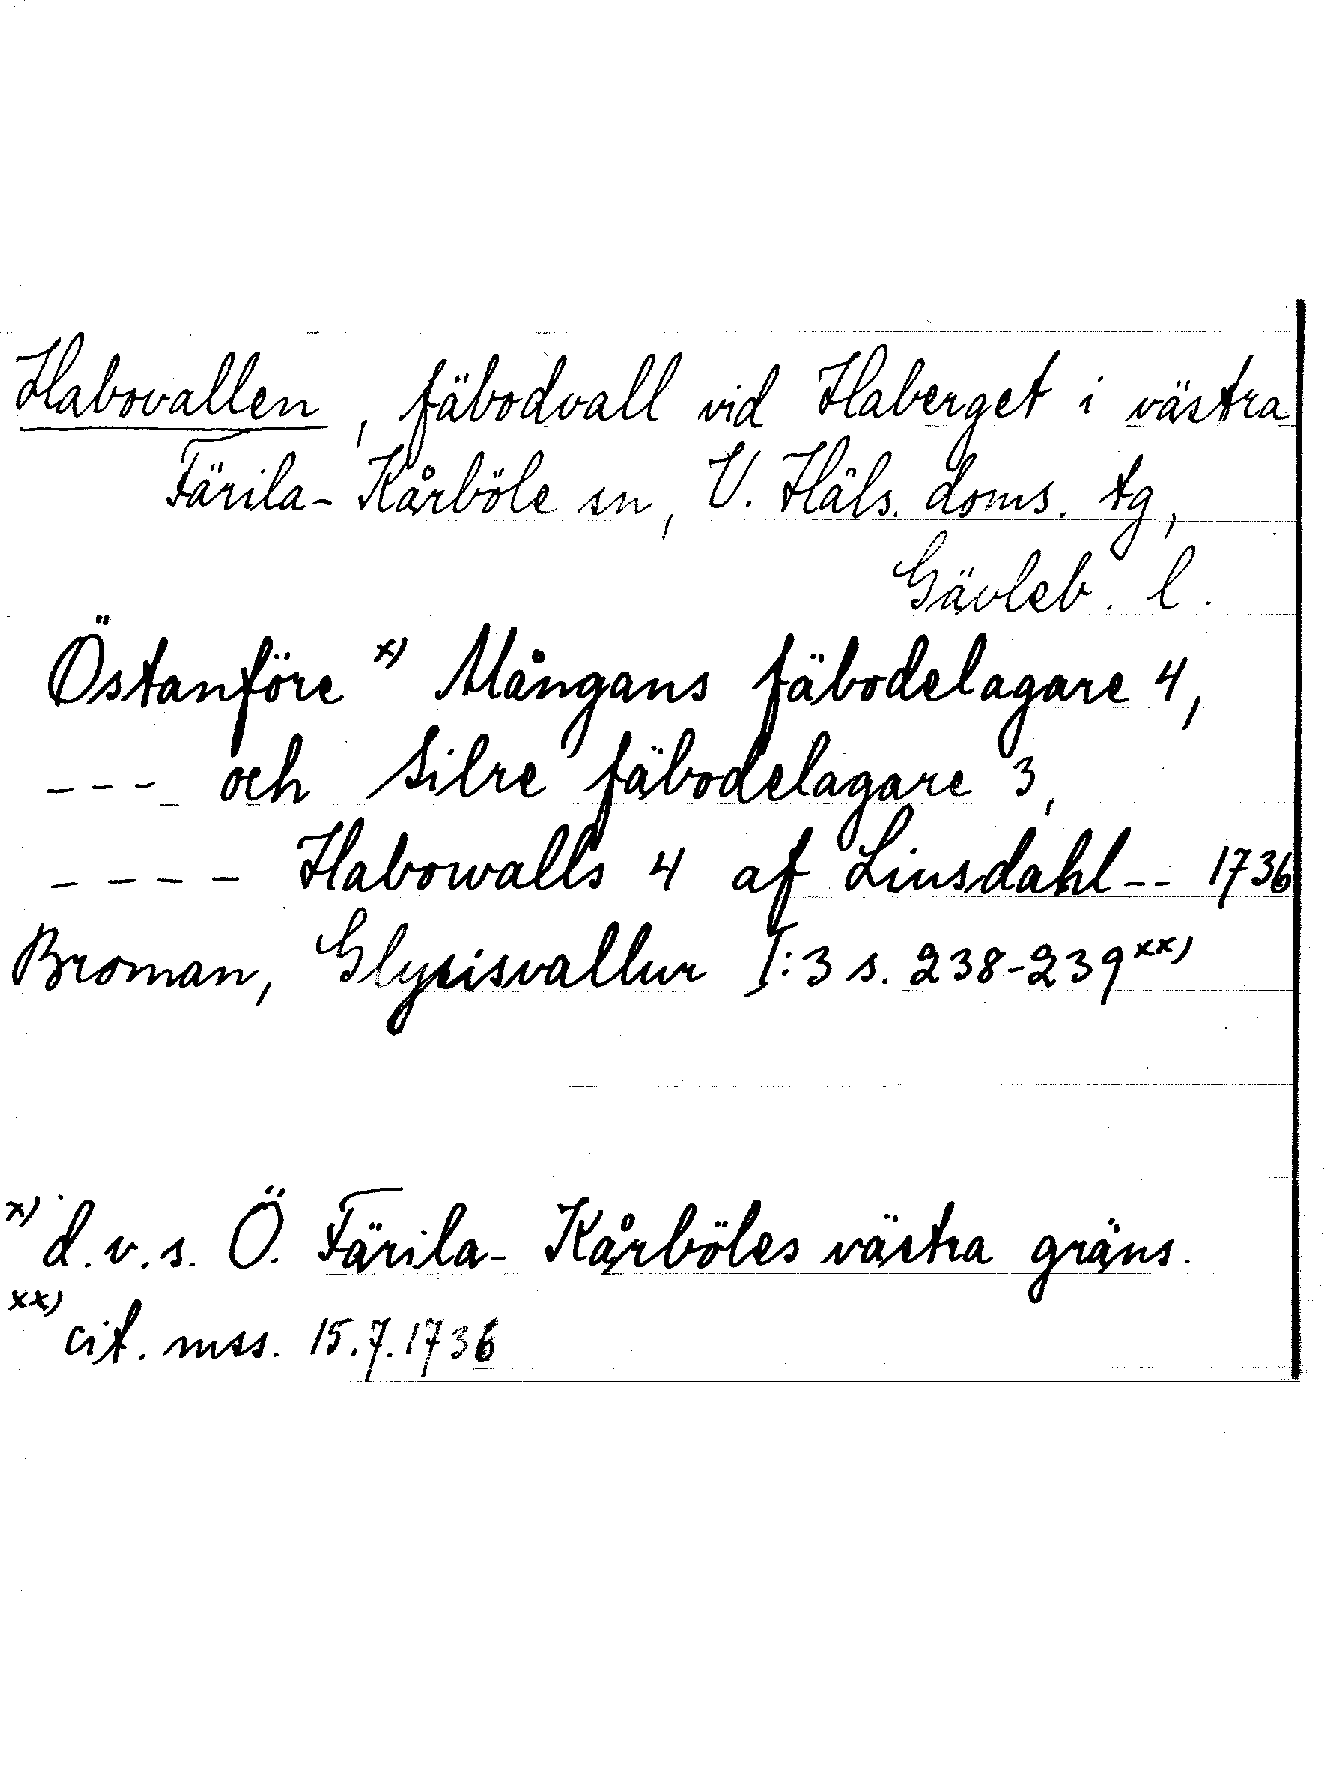 Habovallen, fäbodvall vid Haberget i västra
Färila-Kårböle sn, V. Häls. doms. tg,
Gävleb. l.
Östanföre x) Mångans fäbodelagare 4,
---- och Silre fäbodelagare 3,
---- Habowalls 4 af Liusdahl-- 1736
Broman, Glysisvallur I:3 s. 238-239 xx)
x) d.v.s. Ö. Färila-Kårböles västra gräns.
xx) cit. mss. 15.7.1736